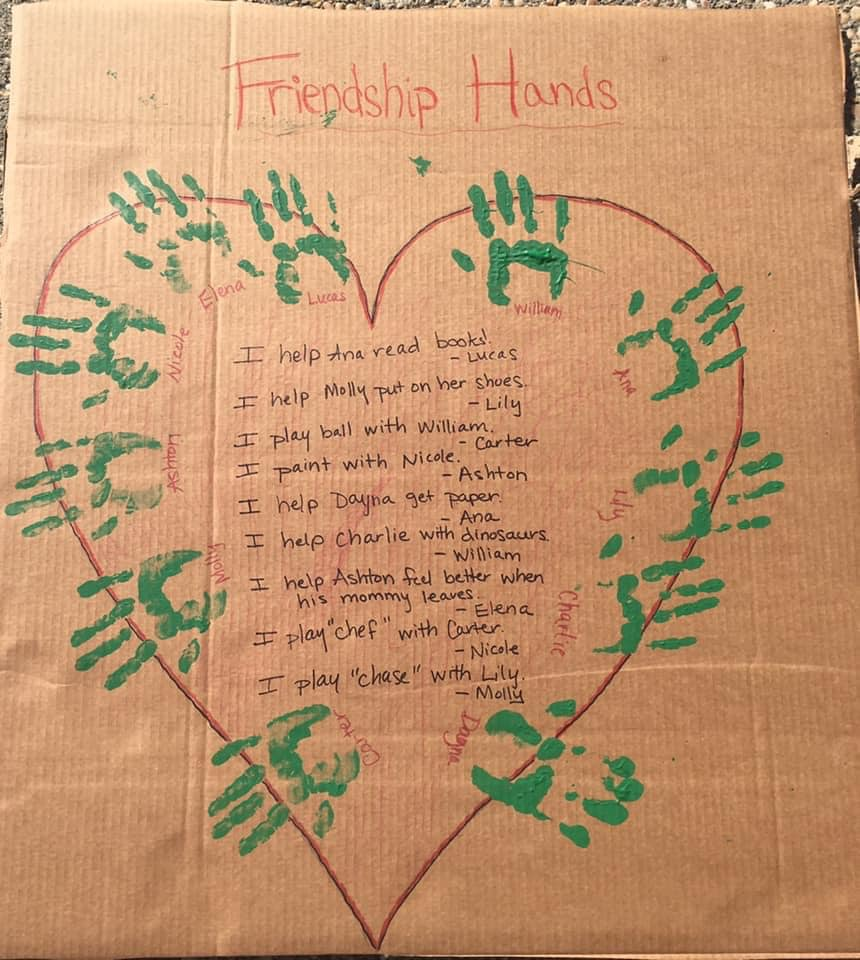 Friendship Hands
Elena
Lucas
William
Nicole
Ana
Ashton
Lily
Molly
Charlie
Carter
Dayna
I help Ana read books!
- Lucas
I help Molly put on her shoes.
- Lily
I play ball with William.
- Carter
I paint with Nicole.
- Ashton
I help Dayna get paper.
- Ana
I help Charlie with dinosaurs.
- William
I help Ashton feel better when
his mommy leaves.
- Elena
I play "chef" with Carter.
- Nicole
I play "chase" with Lily.
- Molly